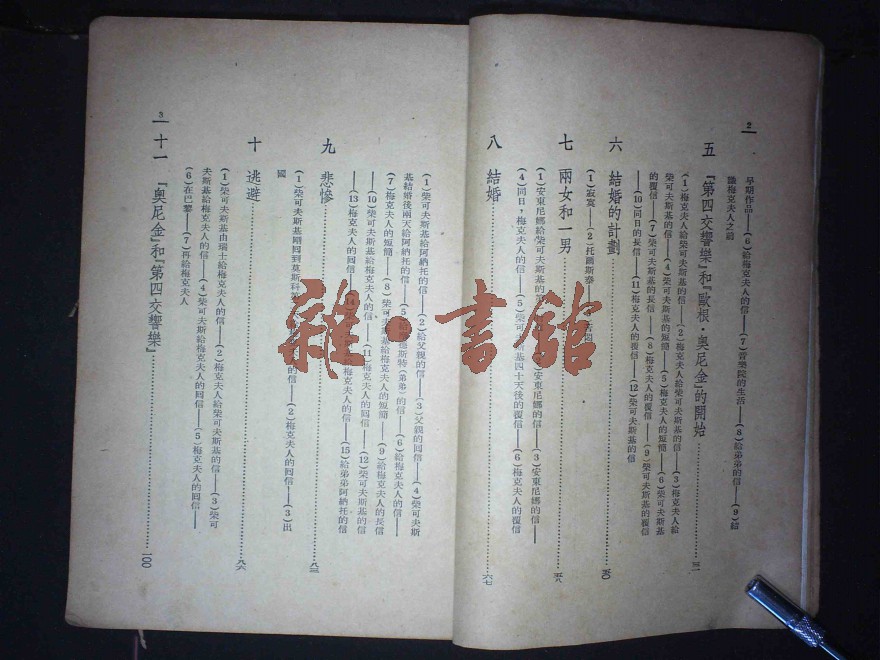 2
早期作品——(6)給梅克夫人的信——(7)音樂院的生活——(8)給弟弟的信——(9)結
識梅克夫人之前
五 『第四交響樂』和『歐根·奧尼金』的開始…………三一
(1)梅克夫人給柴可夫斯基的信——(2)梅克夫人給柴可夫斯基的信——(3)梅克夫人給
柴可夫斯基的信——(4)柴可夫斯基的短簡——(5)梅克夫人的短簡——(6)柴可夫斯基
的覆信——(7)柴可夫斯基的長信——(8)梅克夫人的覆信——(9)柴可夫斯基的覆信
——(10)同日的長信——(11)梅克夫人的覆信——(12)柴可夫斯基的信
六 結婚的計劃…………五〇
(1)寂寞——(2)托爾斯泰
七 兩女和一男…………五八
(1)安東尼娜給柴可夫斯基的 安東尼娜的信——(3)安東尼娜的信——
(4)同日,梅克夫人的信——(5)柴可 基四十天後的覆信——(6)梅克夫人的覆信
八 結婚…………六七
(1)柴可夫斯基給阿納托的信——(2)給父親的信——(3)父親的囘信——(4)柴可夫斯
基結婚後兩天給阿納托的信——(5)給 德斯特(弟弟)的信——(6)給梅克夫人的信——
(7)梅克夫人的短簡——(8)柴可夫斯基給梅克夫人的短簡——(9)給梅克夫人的長信
——(10)柴可夫斯基給梅克夫人的信——(11)梅克夫人的囘信——(12)柴可夫斯基的信
——(13)梅克夫人的囘信——(14) 基給梅克夫人的信——(15)給弟弟阿納托的信
九 悲慘…………八三
(1)柴可夫斯基剛囘到莫斯科 夫人的信——(2)梅克夫人的囘信——(3)出
國
十 逃避…………八六
(1)柴可夫斯基由瑞士給梅克夫人的信——(2)梅克夫人給柴可夫斯基的信——(3)柴可
夫斯基給梅克夫人的信——(4)柴可夫斯給梅克夫人的囘信——(5)梅克夫人的囘信——
(6)在巴黎——(7)再給梅克夫人
3
十一 『奧尼金』和『第四交響樂』…………一〇〇
雜·書館